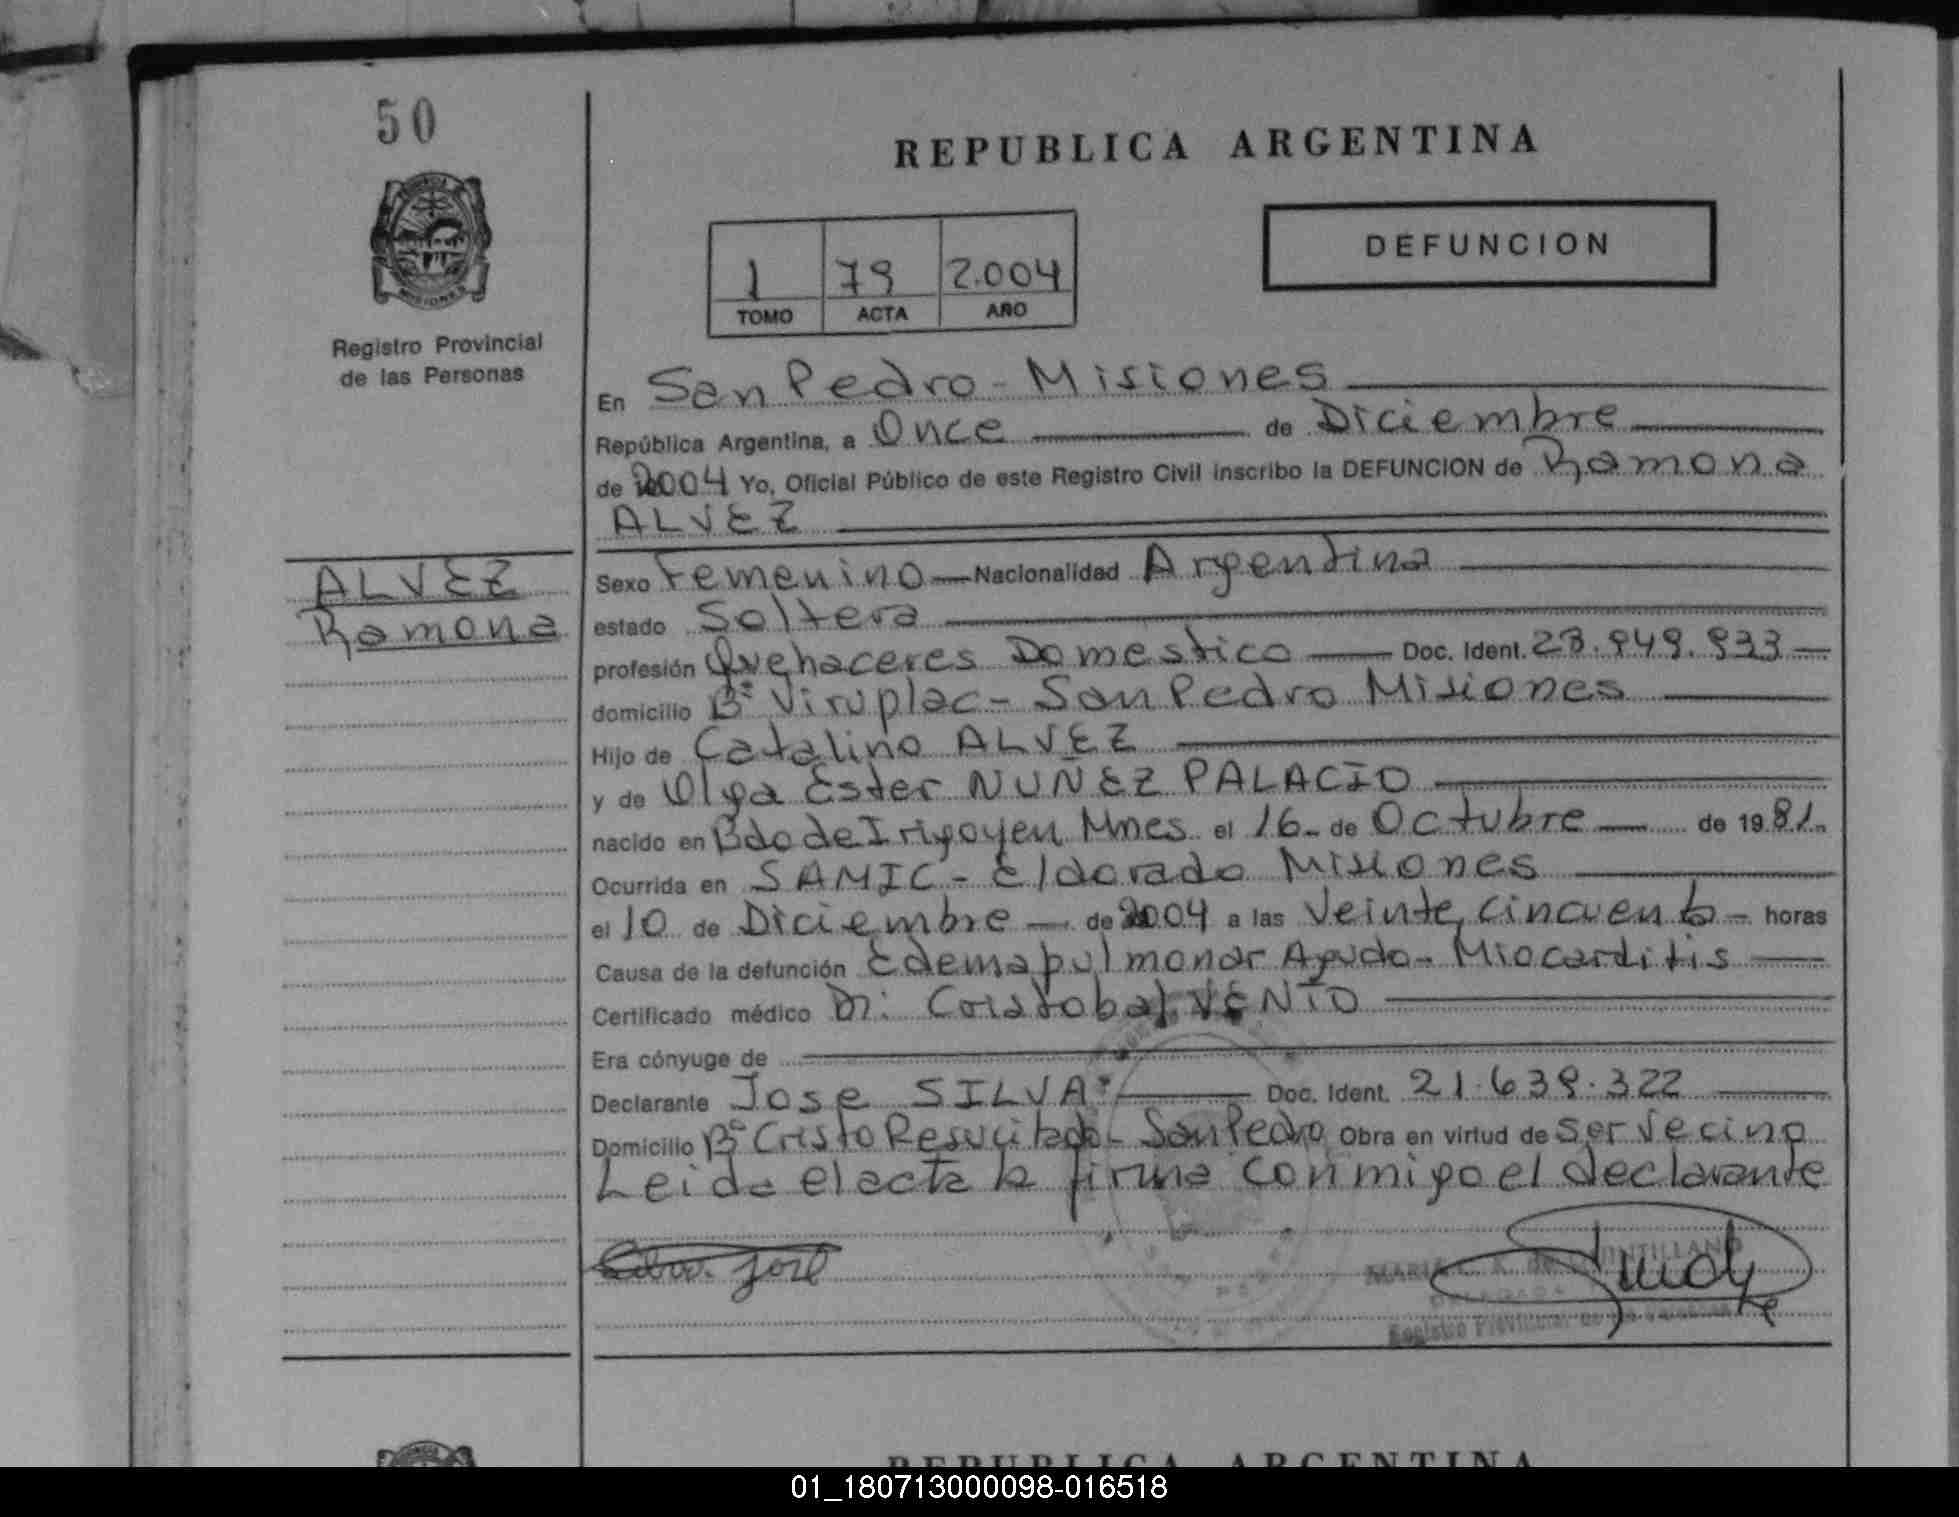 50
REPUBLICA ARGENTINA
DEFUNCION
1 79 2.004
TOMO ACTA AÑO
MISIONES
Registro Provincial
de las Personas
En San Pedro - Misiones
República Argentina, a Once de Diciembre
de 2004 Yo, Oficial Público de este Registro Civil inscribo la DEFUNCION de Ramona
ALVEZ
ALVEZ
Ramona
Sexo Femenino Nacionalidad Argentina
estado Soltera
profesión Quehaceres Domestico Doc. Ident.
domicilio B° Viruplac - San Pedro Misiones
Hijo de Catalino ALVEZ
y de Olga Ester NUÑEZ PALACIO
nacido en Bdo de Irigoyen Mnes. el 16 de Octubre de 1981.
Ocurrida en SAMIC - Eldorado Misiones
el 10 de Diciembre de 2004 a las Veinte, cincuenta horas
Causa de la defunción Edema pulmonar Agudo - Miocarditis
Certificado médico Dr: Cristobal VENIO
Era cónyuge de
Declarante Jose SILVA Doc. Ident. 21.639.322
Domicilio B° Cristo Resucitado - San Pedro Obra en virtud de ser vecino
Leida el acta la firma conmigo el declarante
José
MARIA
Registro Provincial de las Personas
REPUBLICA ARGENTINA
01_180713000098-016518